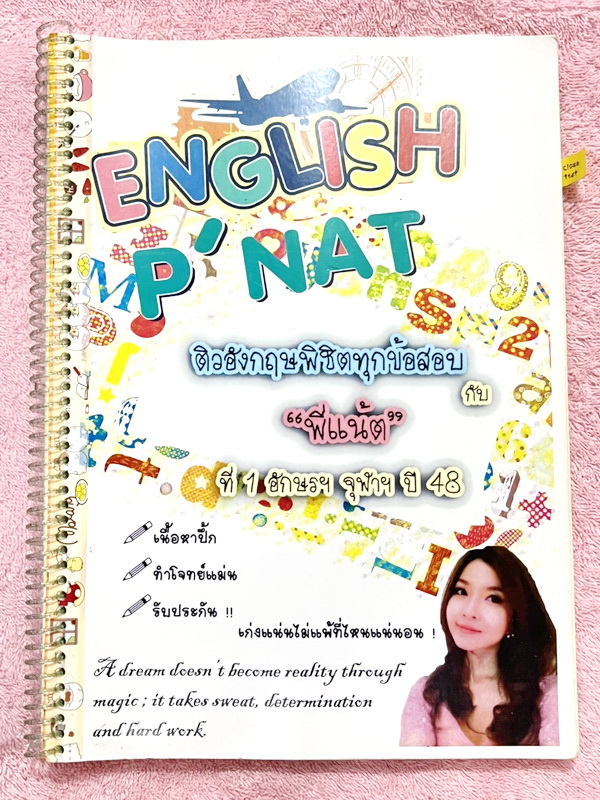 ENGLISH
P'NAT
ติวอังกฤษพิชิตทุกข้อสอบ
กับ
“พี่แน้ต”
ที่ 1 อักษรฯ จุฬาฯ ปี 48
เนื้อหาปึ้ก
ทำโจทย์แม่น
รับประกัน !!
เก่งแน่นไม่แพ้ที่ไหนแน่นอน !
A dream doesn't become reality through
magic ; it takes sweat, determination
and hard work.
cloze
test